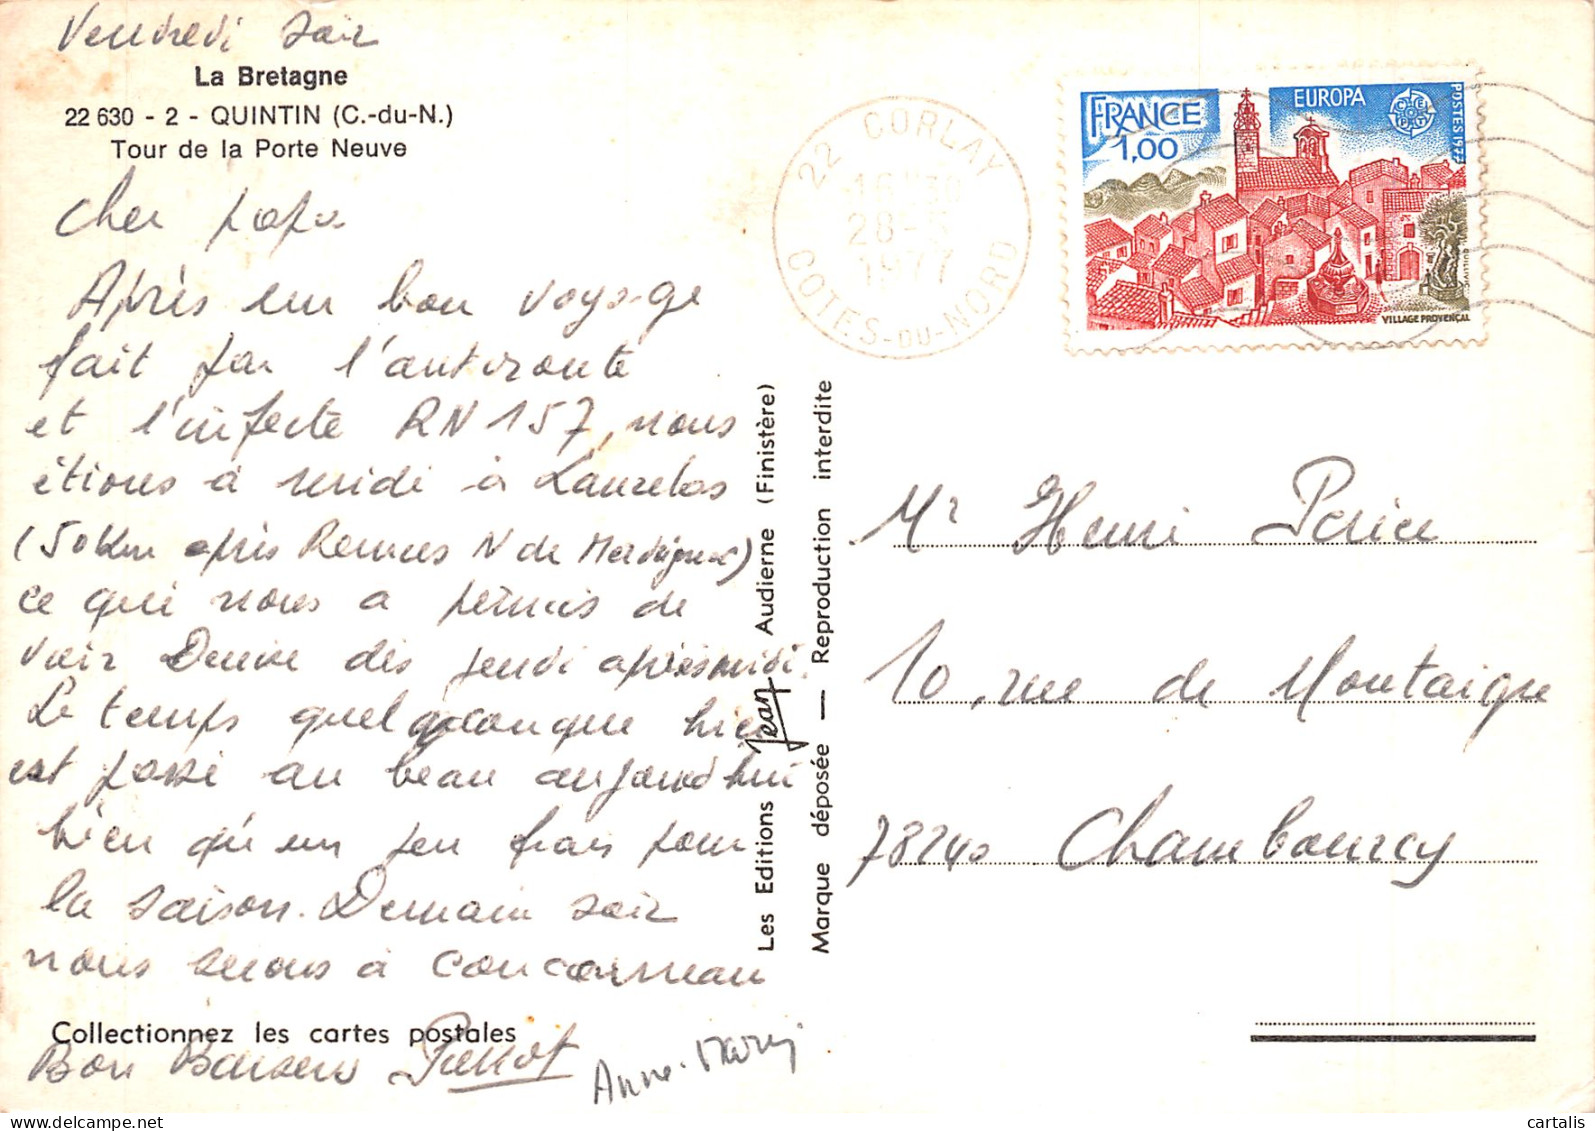 Vendredi soir
La Bretagne
22 630 - 2 - QUINTIN (C.-du-N.)
Tour de la Porte Neuve
Cher papa
Après un bon voyage
fait par l'autoroute
et l'infecte RN 157, nous
étions à midi à Lanrelas
(50 km après Rennes N de Merdrignac)
ce qui nous a permis de
voir Denise dès jeudi après midi.
Le temps quelconque hier
est passé au beau aujourd'hui
bien qu'un peu frais pour
la saison. Demain soir
nous serons à Concarneau
Collectionnez les cartes postales
Bon Baisers Pierrot
Anne-Mary
Les Editions Jean Audierne (Finistère)
Marque déposée — Reproduction interdite
22 CORLAY
16H30
28-
1977
COTES-DU-NORD
FRANCE
1,00
EUROPA
CEPT
POSTES 1977
VILLAGE PROVENÇAL
Mr Henri Perice
10, rue de Montaigne
78240 Chambourcy
cartalis
www.delcampe.net